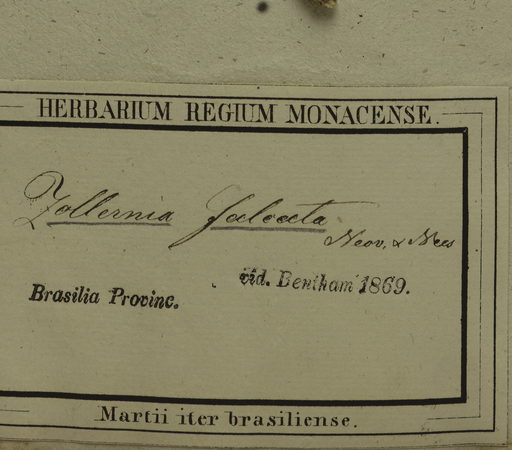 HERBARIUM REGIUM MONACENSE.
Zollernia falcata
Neov. & Nees
vid. Bentham 1869.
Brasilia Provinc.
Martii iter brasiliense.